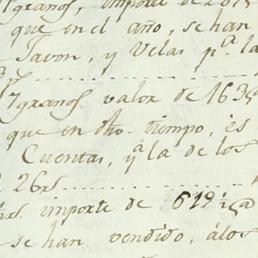 granos, importe de
que en el año, se han
Javon, y Velas p.ª la
7 granos valor de 163
que en dho. tiempo, es
Cuentas, y ª la de los
26 rs
importe de 619
se han vendido, á los